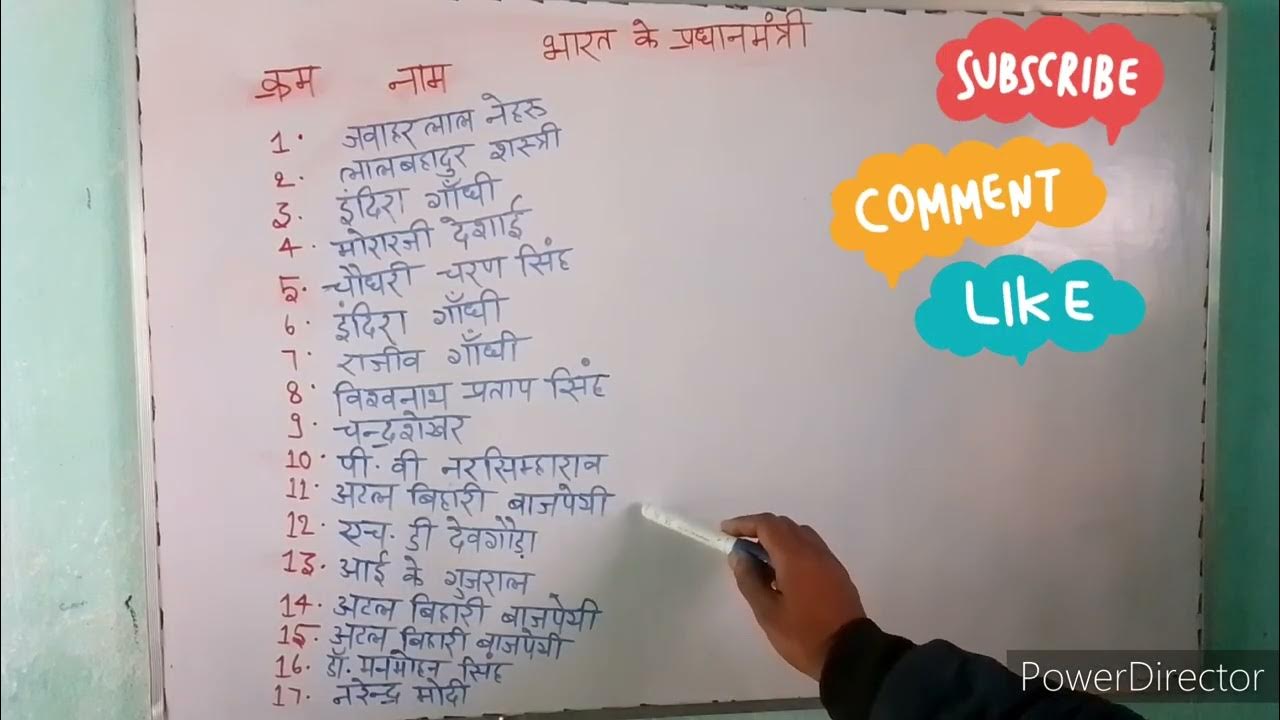 भारत के प्रधानमंत्री
क्रम नाम
1. जवाहर लाल नेहरु
2. लालबहादुर शस्त्री
3. इंदिरा गाँधी
4. मोरारजी देशाई
5. चौधरी चरण सिंह
6. इंदिरा गाँधी
7. राजीव गाँधी
8. विश्वनाथ प्रताप सिंह
9. चन्द्रशेखर
10. पी. वी नरसिम्हाराव
11. अटल बिहारी बाजपेयी
12. एच. डी देवगौड़ा
13. आई के गुजराल
14. अटल बिहारी बाजपेयी
15. अटल बिहारी बाजपेयी
16. डॉ. मनमोहन सिंह
17. नरेन्द्र मोदी
SUBSCRIBE
COMMENT
LIKE
PowerDirector